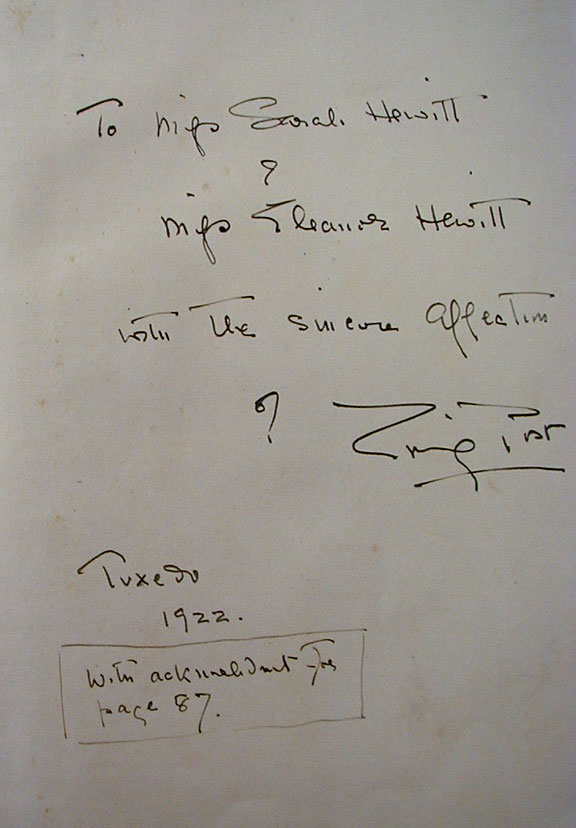 To Miss Sarah Hewitt
&
Miss Eleanor Hewitt
with the sincere affection
of Emily Post
Tuxedo
1922.
with acknowledgment for
page 87.